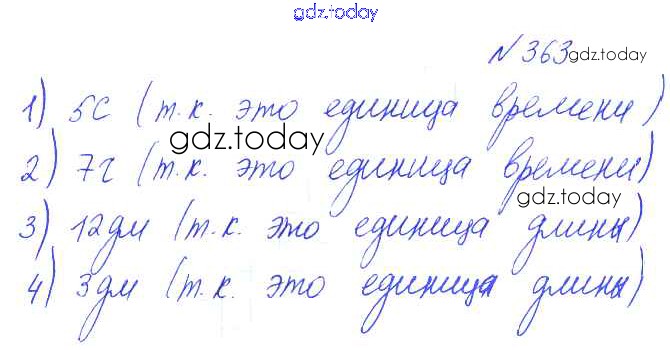 gdz.today
№ 363 gdz.today
1) 5с (т.к. это единица времени)
gdz.today
2) 7г (т.к. это единица времени)
gdz.today
3) 12дм (т.к. это единица длины)
4) 3дм (т.к. это единица длины)